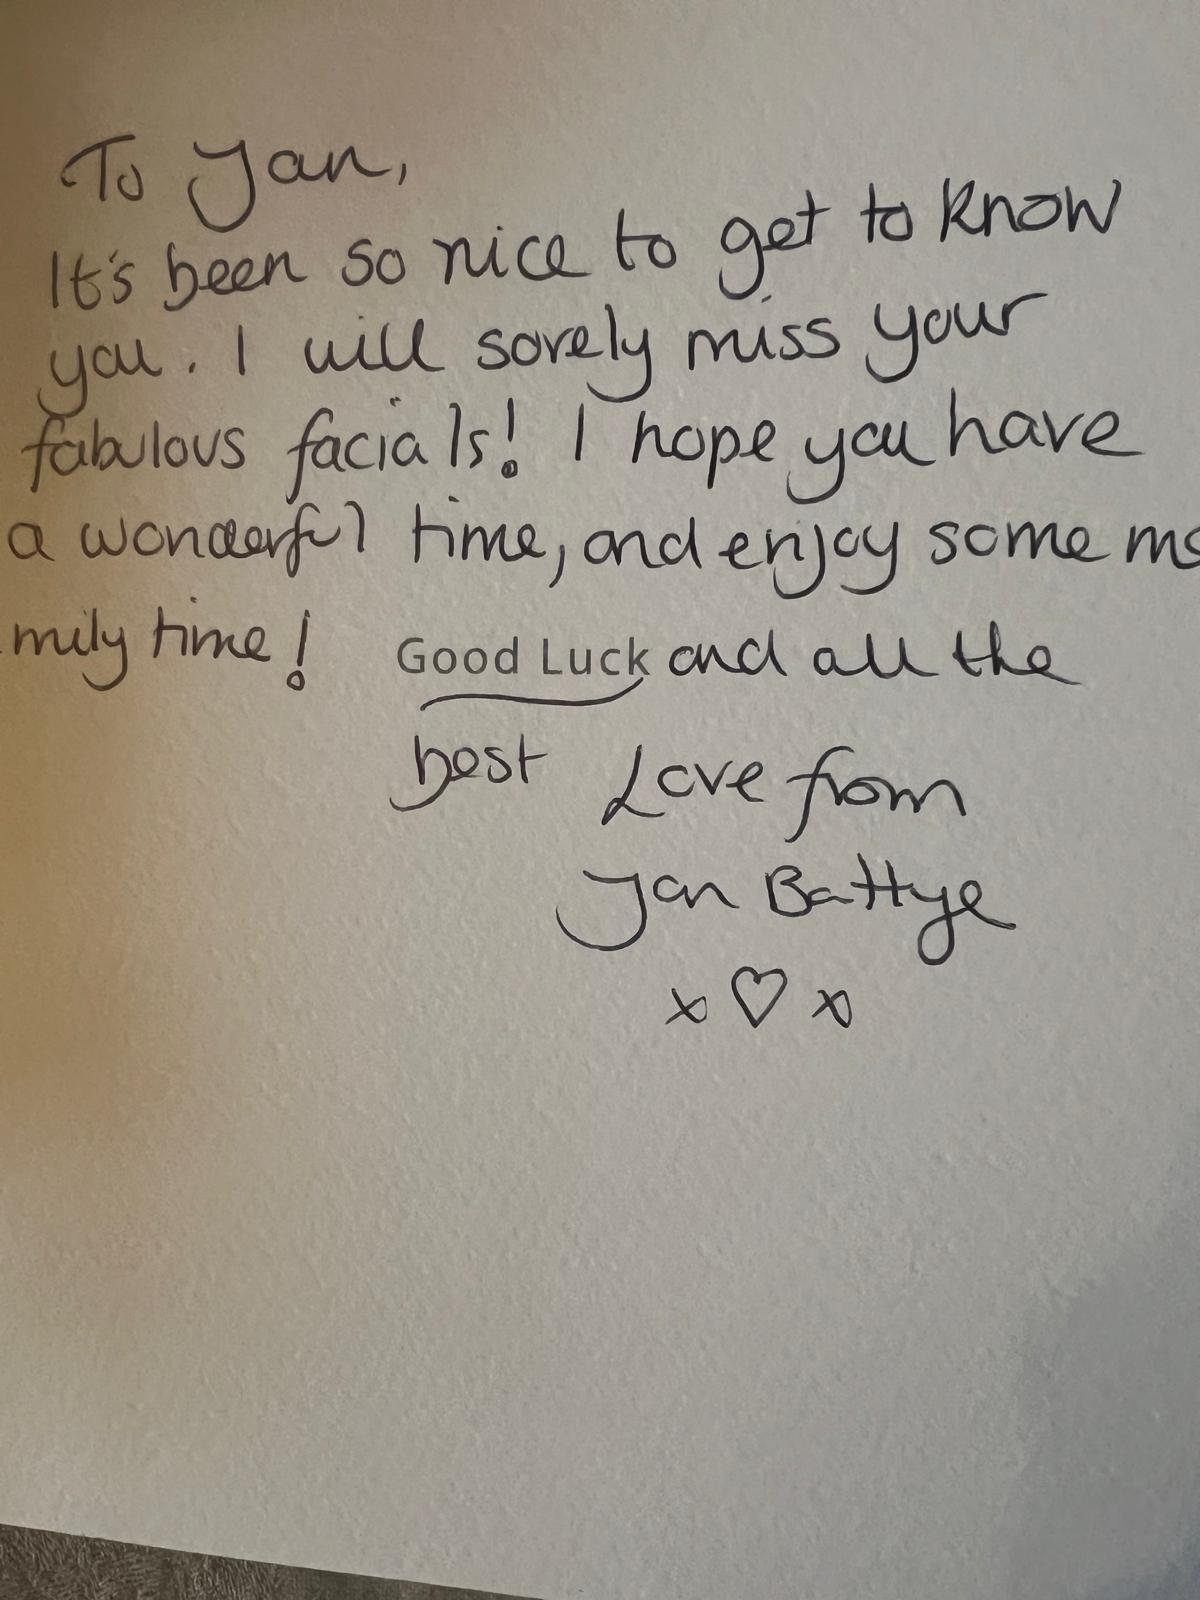 To Jan,
It's been so nice to get to know
you. I will sorely miss your
fabulous facials! I hope you have
a wonderful time, and enjoy some
mily time! Good Luck and all the
best Love from
Jan Battye
x ♡ x